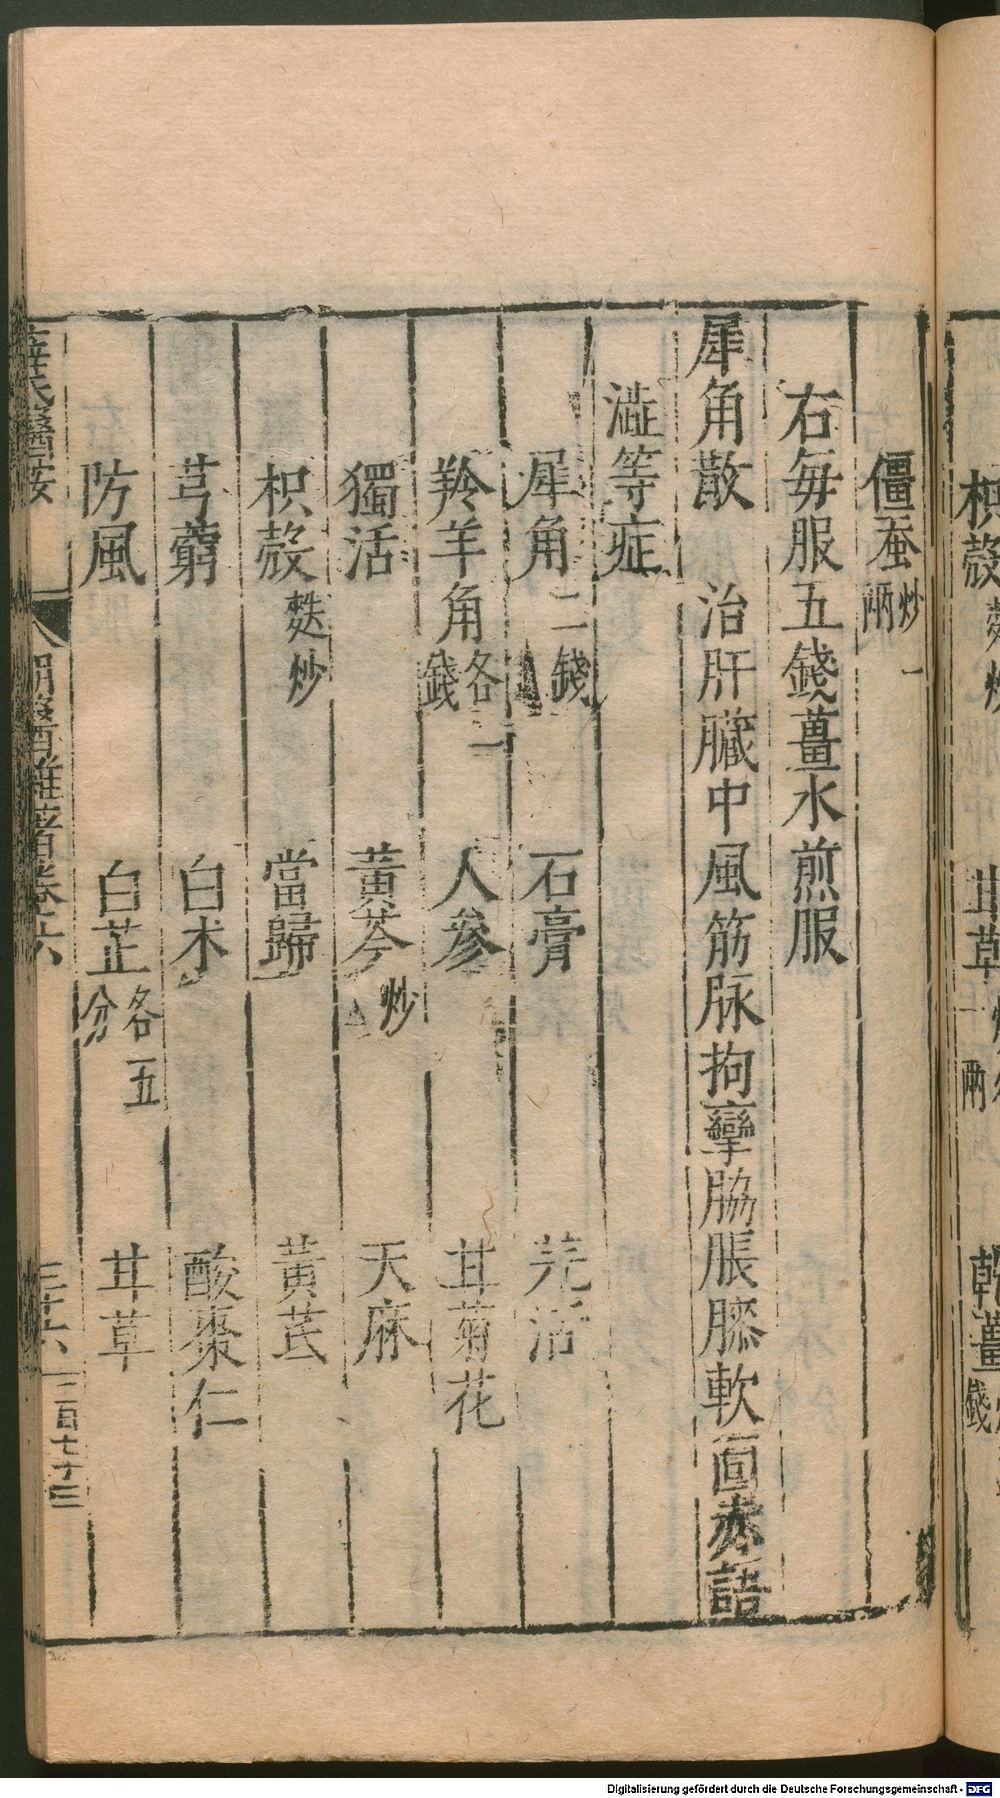 僵蚕炒一兩
右毎服五錢薑水煎服
犀角散 治肝臟中風筋脉拘攣脇脹膝軟面赤語
澁等症
犀角二錢 石膏 羌活
羚羊角各一錢 人參 甘菊花
獨活 黃芩炒 天麻
枳殼麩炒 當歸 黃芪
芎藭 白术 酸棗仁
防風 白芷各五分 甘草
薛氏醫案 明醫雜著卷六 三十六 二百七十三
Digitalisierung gefördert durch die Deutsche Forschungsgemeinschaft - DFG